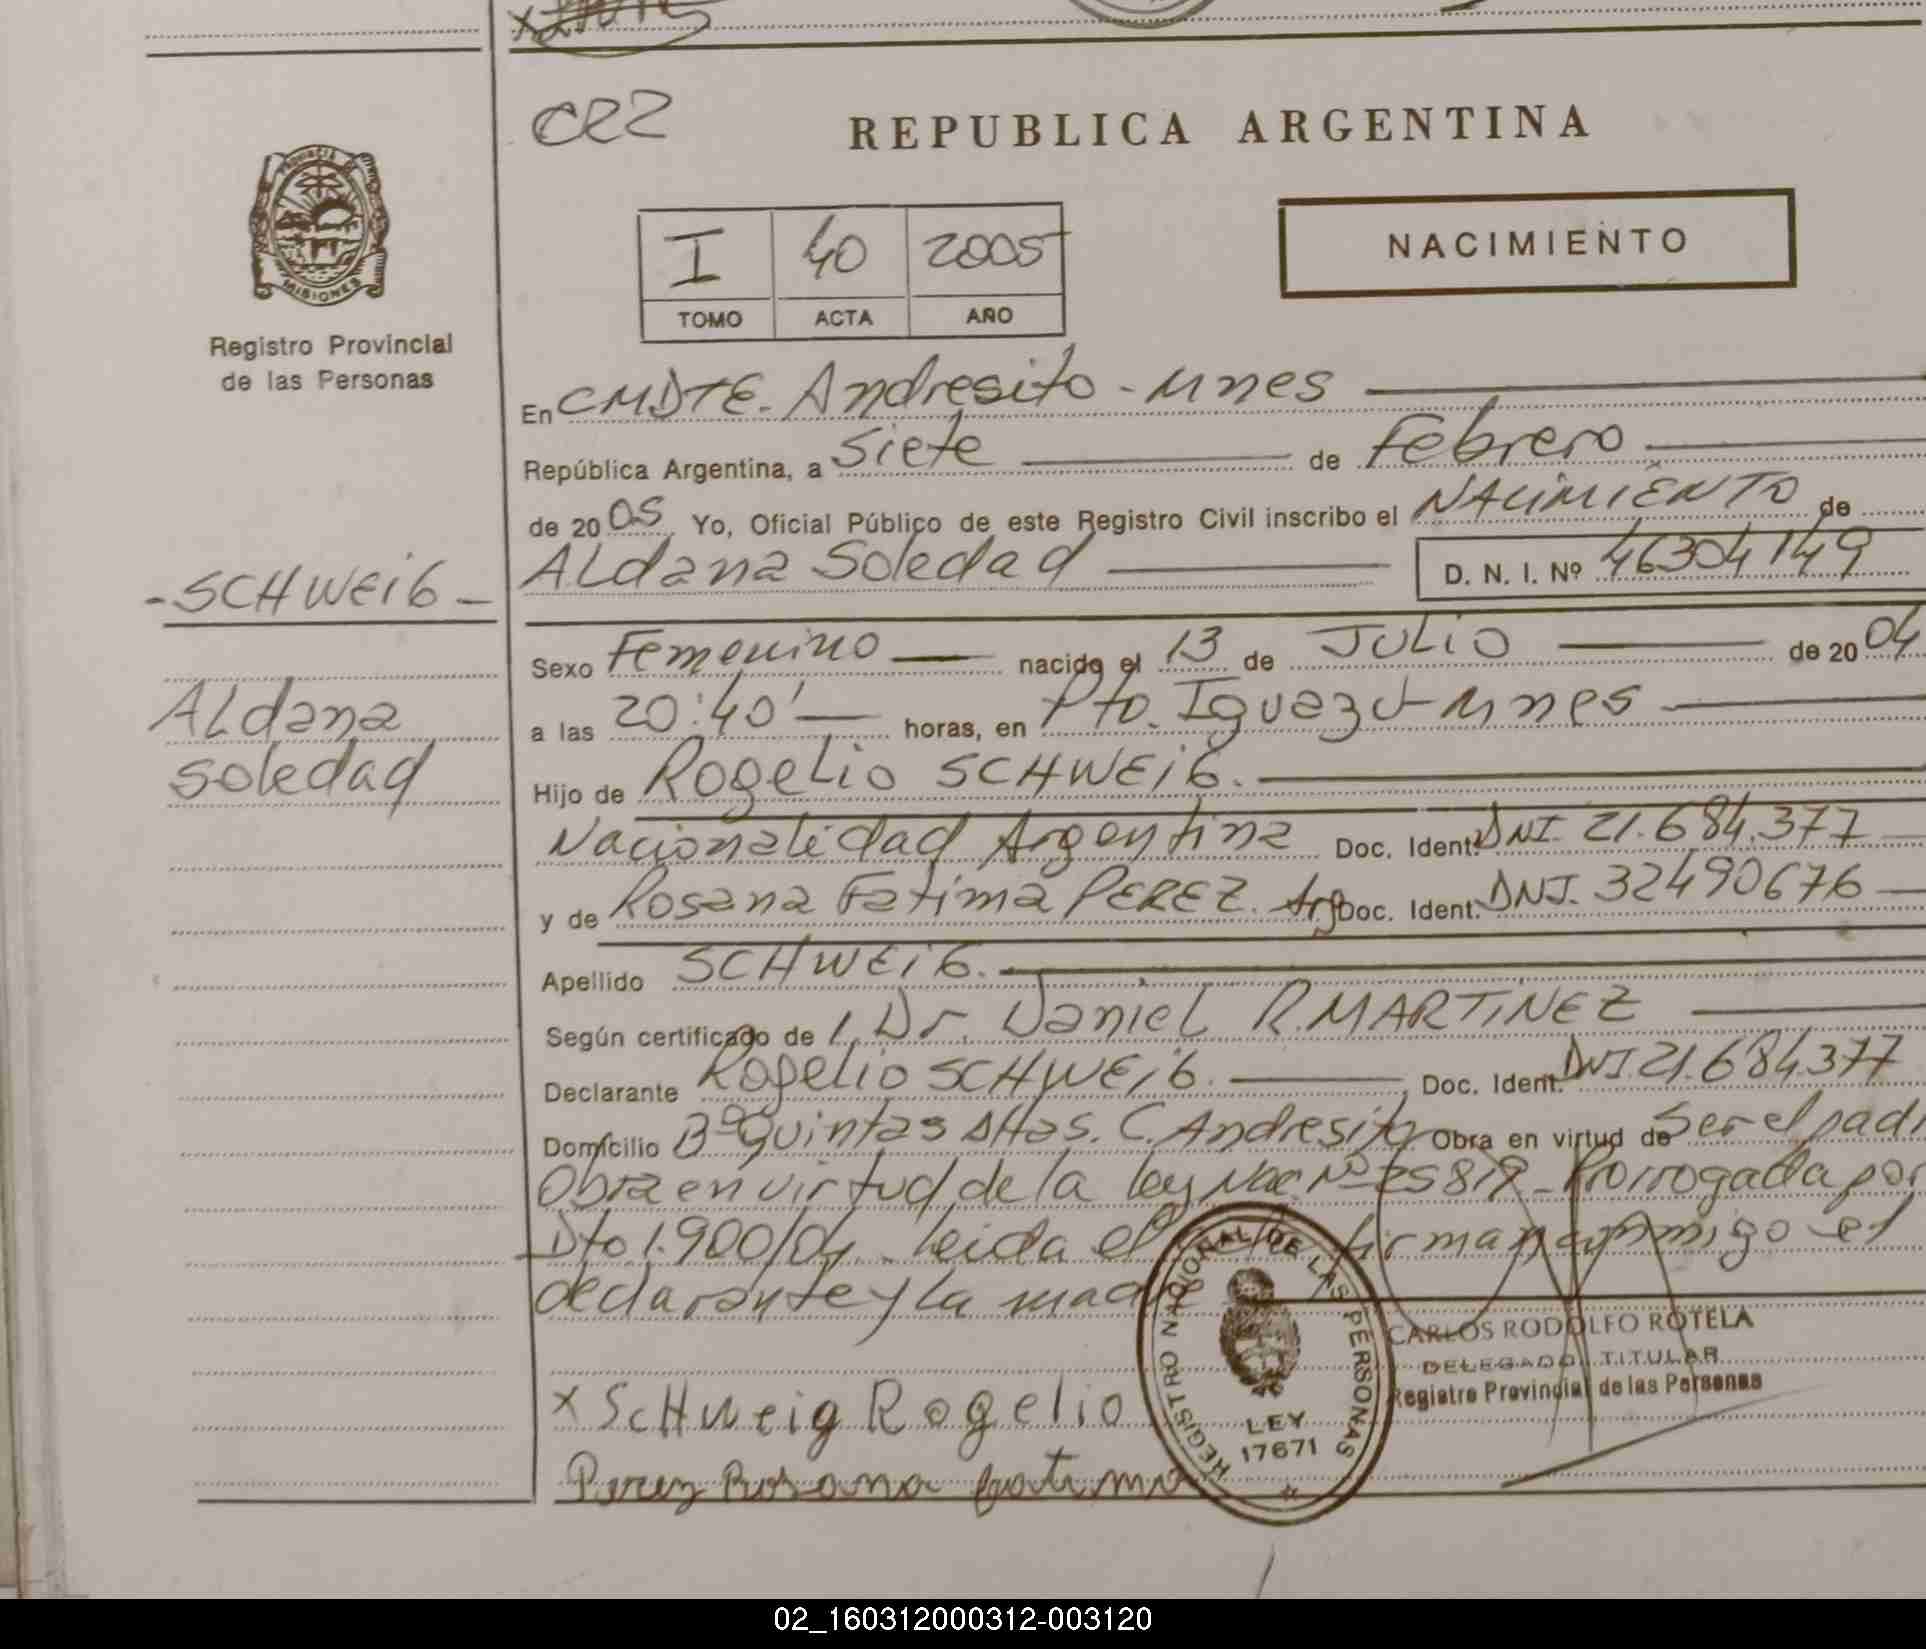 CRZ
REPUBLICA ARGENTINA
PROVINCIA DE MISIONES
Registro Provincial
de las Personas
I 40 2005
TOMO ACTA AÑO
NACIMIENTO
En CMDTE. Andresito - Mnes
República Argentina, a Siete de Febrero
de 20 05 Yo, Oficial Público de este Registro Civil inscribo el NACIMIENTO de
Aldana Soledad D. N. I. Nº 46304149
- SCHWEIG -
Aldana
Soledad
Sexo Femenino nacido el 13 de JULIO de 20 04
a las 20:40' horas, en Pto. Iguazú - Mnes
Hijo de Rogelio SCHWEIG.
Nacionalidad Argentina Doc. Ident. DNI. 21.684.377
y de Rosana Fatima PEREZ. Arg Doc. Ident. DNI. 32490676
Apellido SCHWEIG.
Según certificado de Dr. Daniel R. MARTINEZ
Declarante Rogelio SCHWEIG. Doc. Ident. DNI 21.684.377
Domicilio Bº Quintas Altas. C. Andresito Obra en virtud de ser el pad
Obra en virtud de la ley Nac. Nº 25819 - Prorrogada por
Dto 1.900/04. Leida el firman conmigo el
declarante y la madre
CARLOS RODOLFO ROTELA
DELEGADO TITULAR
Registro Provincial de las Personas
REGISTRO NACIONAL DE LAS PERSONAS
LEY
17671
x SCHWeig Rogelio
Perez Rosana fatima
02_160312000312-003120